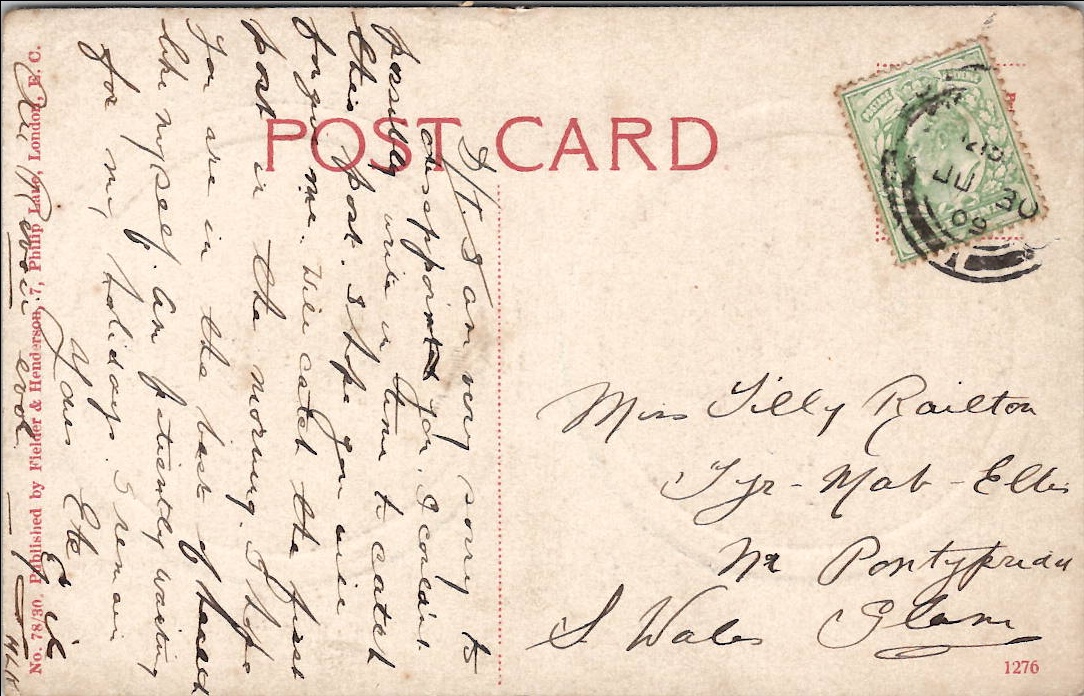 POST CARD
D/T. I am very sorry to
disappoint you. I couldnt
possibly write in time to catch
this post. I hope you will
forgive me. Will catch the first
post in the morning. I hope
you are in the best of health
like myself. Am patiently waiting
for my holidays. I remain
Yours Etc
No. 78/30. Published by Fielder & Henderson, 7, Philip Lane, London, E. C.
Miss Tilly Railton
Tyr-Mab-Ellis
Nr Pontypridd
S Wales Glam
POSTAGE REVENUE
JE 28
09
1276